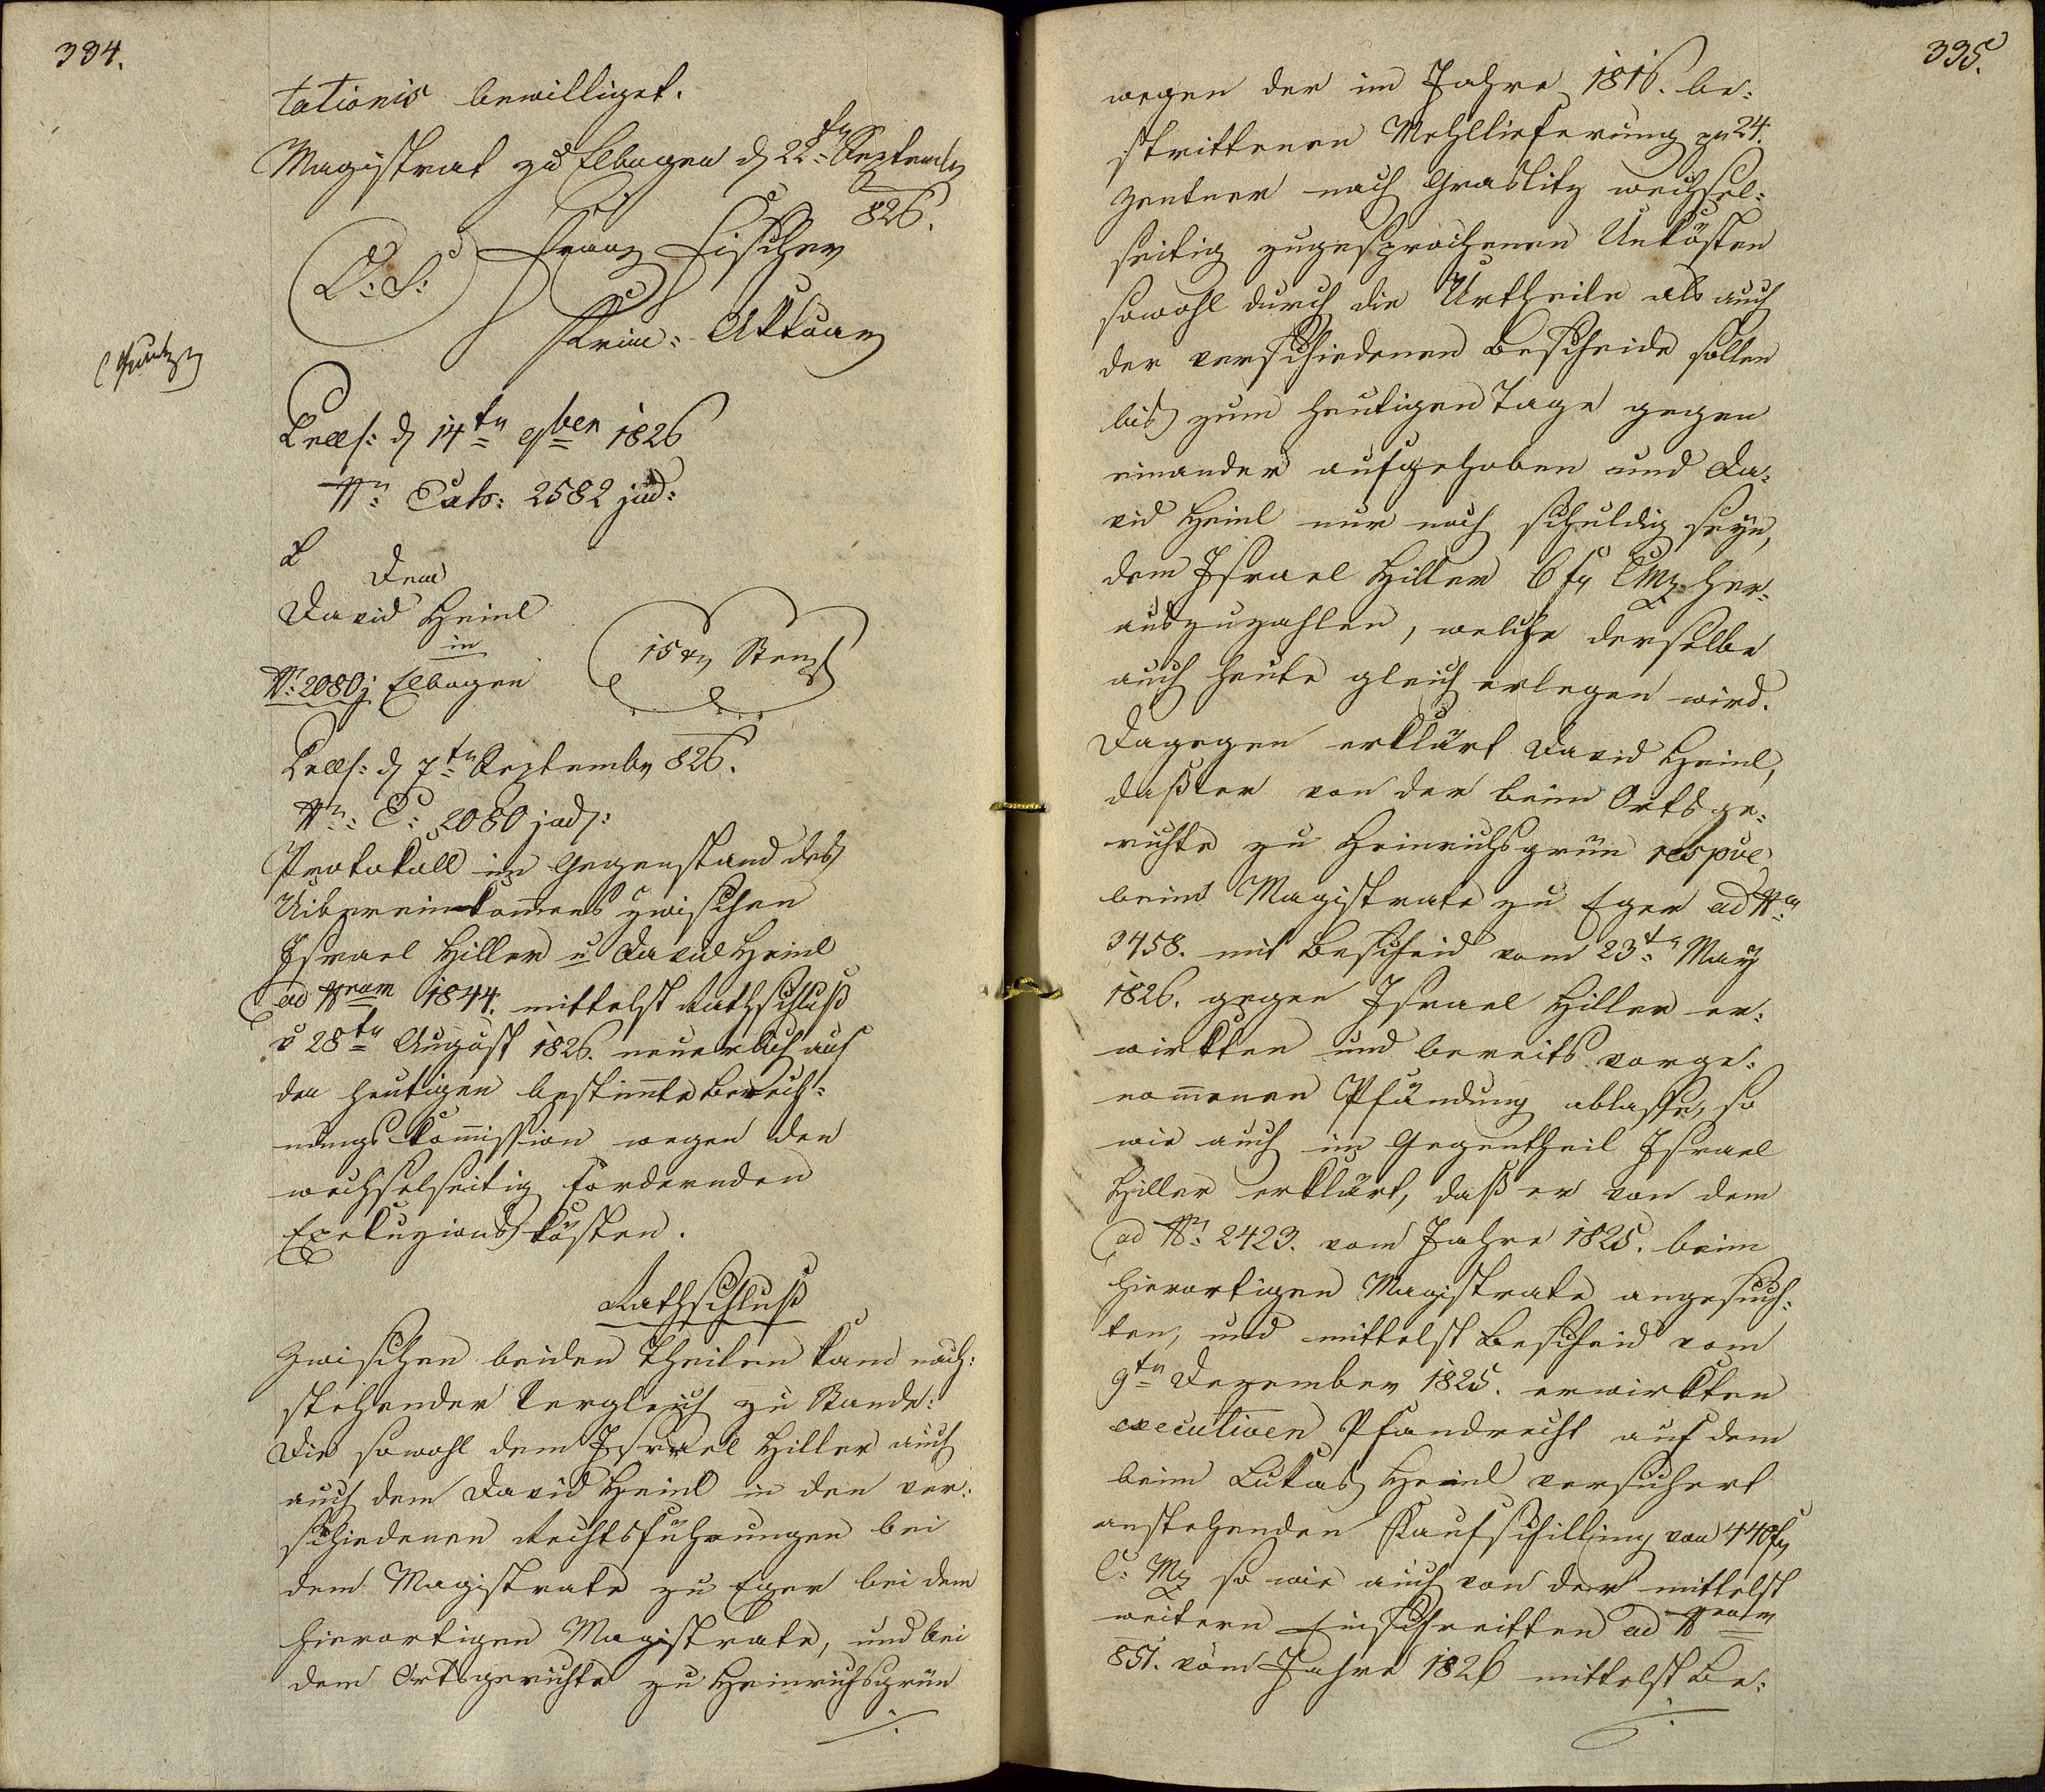 334.
tationis bewilliget.
Magistrat zu Elbogen d 22tn Septemb
826.
L: S: Franz Fischer
Krim: Aktuar
Praes: d 14tn 9ber 1826
Nr: Exh: 2582 jud:
Dem
David Heinl
in
Nr: 2080j Elbogen
15 xr Stempl
Praes: d 7tn Septembr 826.
Nr: E: 2080 jud:
Protokoll im Gegenstand des
Uibereinkomens zwischen
Israel Hiller u David Heinl
ad Nram 1844. mittelst Rathschluß
v 28tn August 1826. neuerlich auf
den heutigen bestimte Berech=
nungs Kommission wegen den
wechselseitig fordernden
Exekuzions kösten.
Rathschluß
Zwischen beiden Theilen kam nach=
stehender Vergleich zu Stande:
Die sowohl dem Israel Hiller auch
auch dem David Heinl in den ver=
schiedenen Rechtsführungen bei
dem Magistrate zu Eger bei dem
hierortigen Magistrate, und bei
dem Ortsgerichte zu Heinrichsgrün
335.
wegen der im Jahre 1816. be=
strittenen Mehllieferung zu 24.
Zentner nach Graslitz wechsel=
seitig zugesprochenen Unkösten
sowohl durch die Urtheile als auch
der verschiedenen Bescheide sollen
bis zum heutigen Tage gegen
einander aufgehoben und Da=
vid Heinl nur noch schuldig seyn,
dem Israel Hiller 6 fr CMz her=
auszuzahlen, welche derselbe
auch heute gleich erlegen wird.
Dagegen erklärt David Heinl,
daß er von der beim Ortsge=
richte zu Heinrichsgrün respve
beim Magistrate zu Eger ad Nr:
3458. mit Bescheid vom 23tn May
1826. gegen Israel Hiller er=
wirkten und bereits vorge=
nommenen Pfändung ablasse, so
wie auch im Gegentheil Israel
Hiller erklärt, daß er von dem
ad Nr: 2423. vom Jahre 1825. beim
hierortigen Magistrate angesuch=
ten, und mittelst Bescheid vom
9tn Dezember 1825. erwirkten
executiven Pfandrecht auf dem
beim Lukas Heinl versichert
anstehenden Kaufschilling von 440 fr
C: Mz so wie auch von der mittelst
weitern Einschreitten ad Nram
851. vom Jahre 1826 mittelst Be=